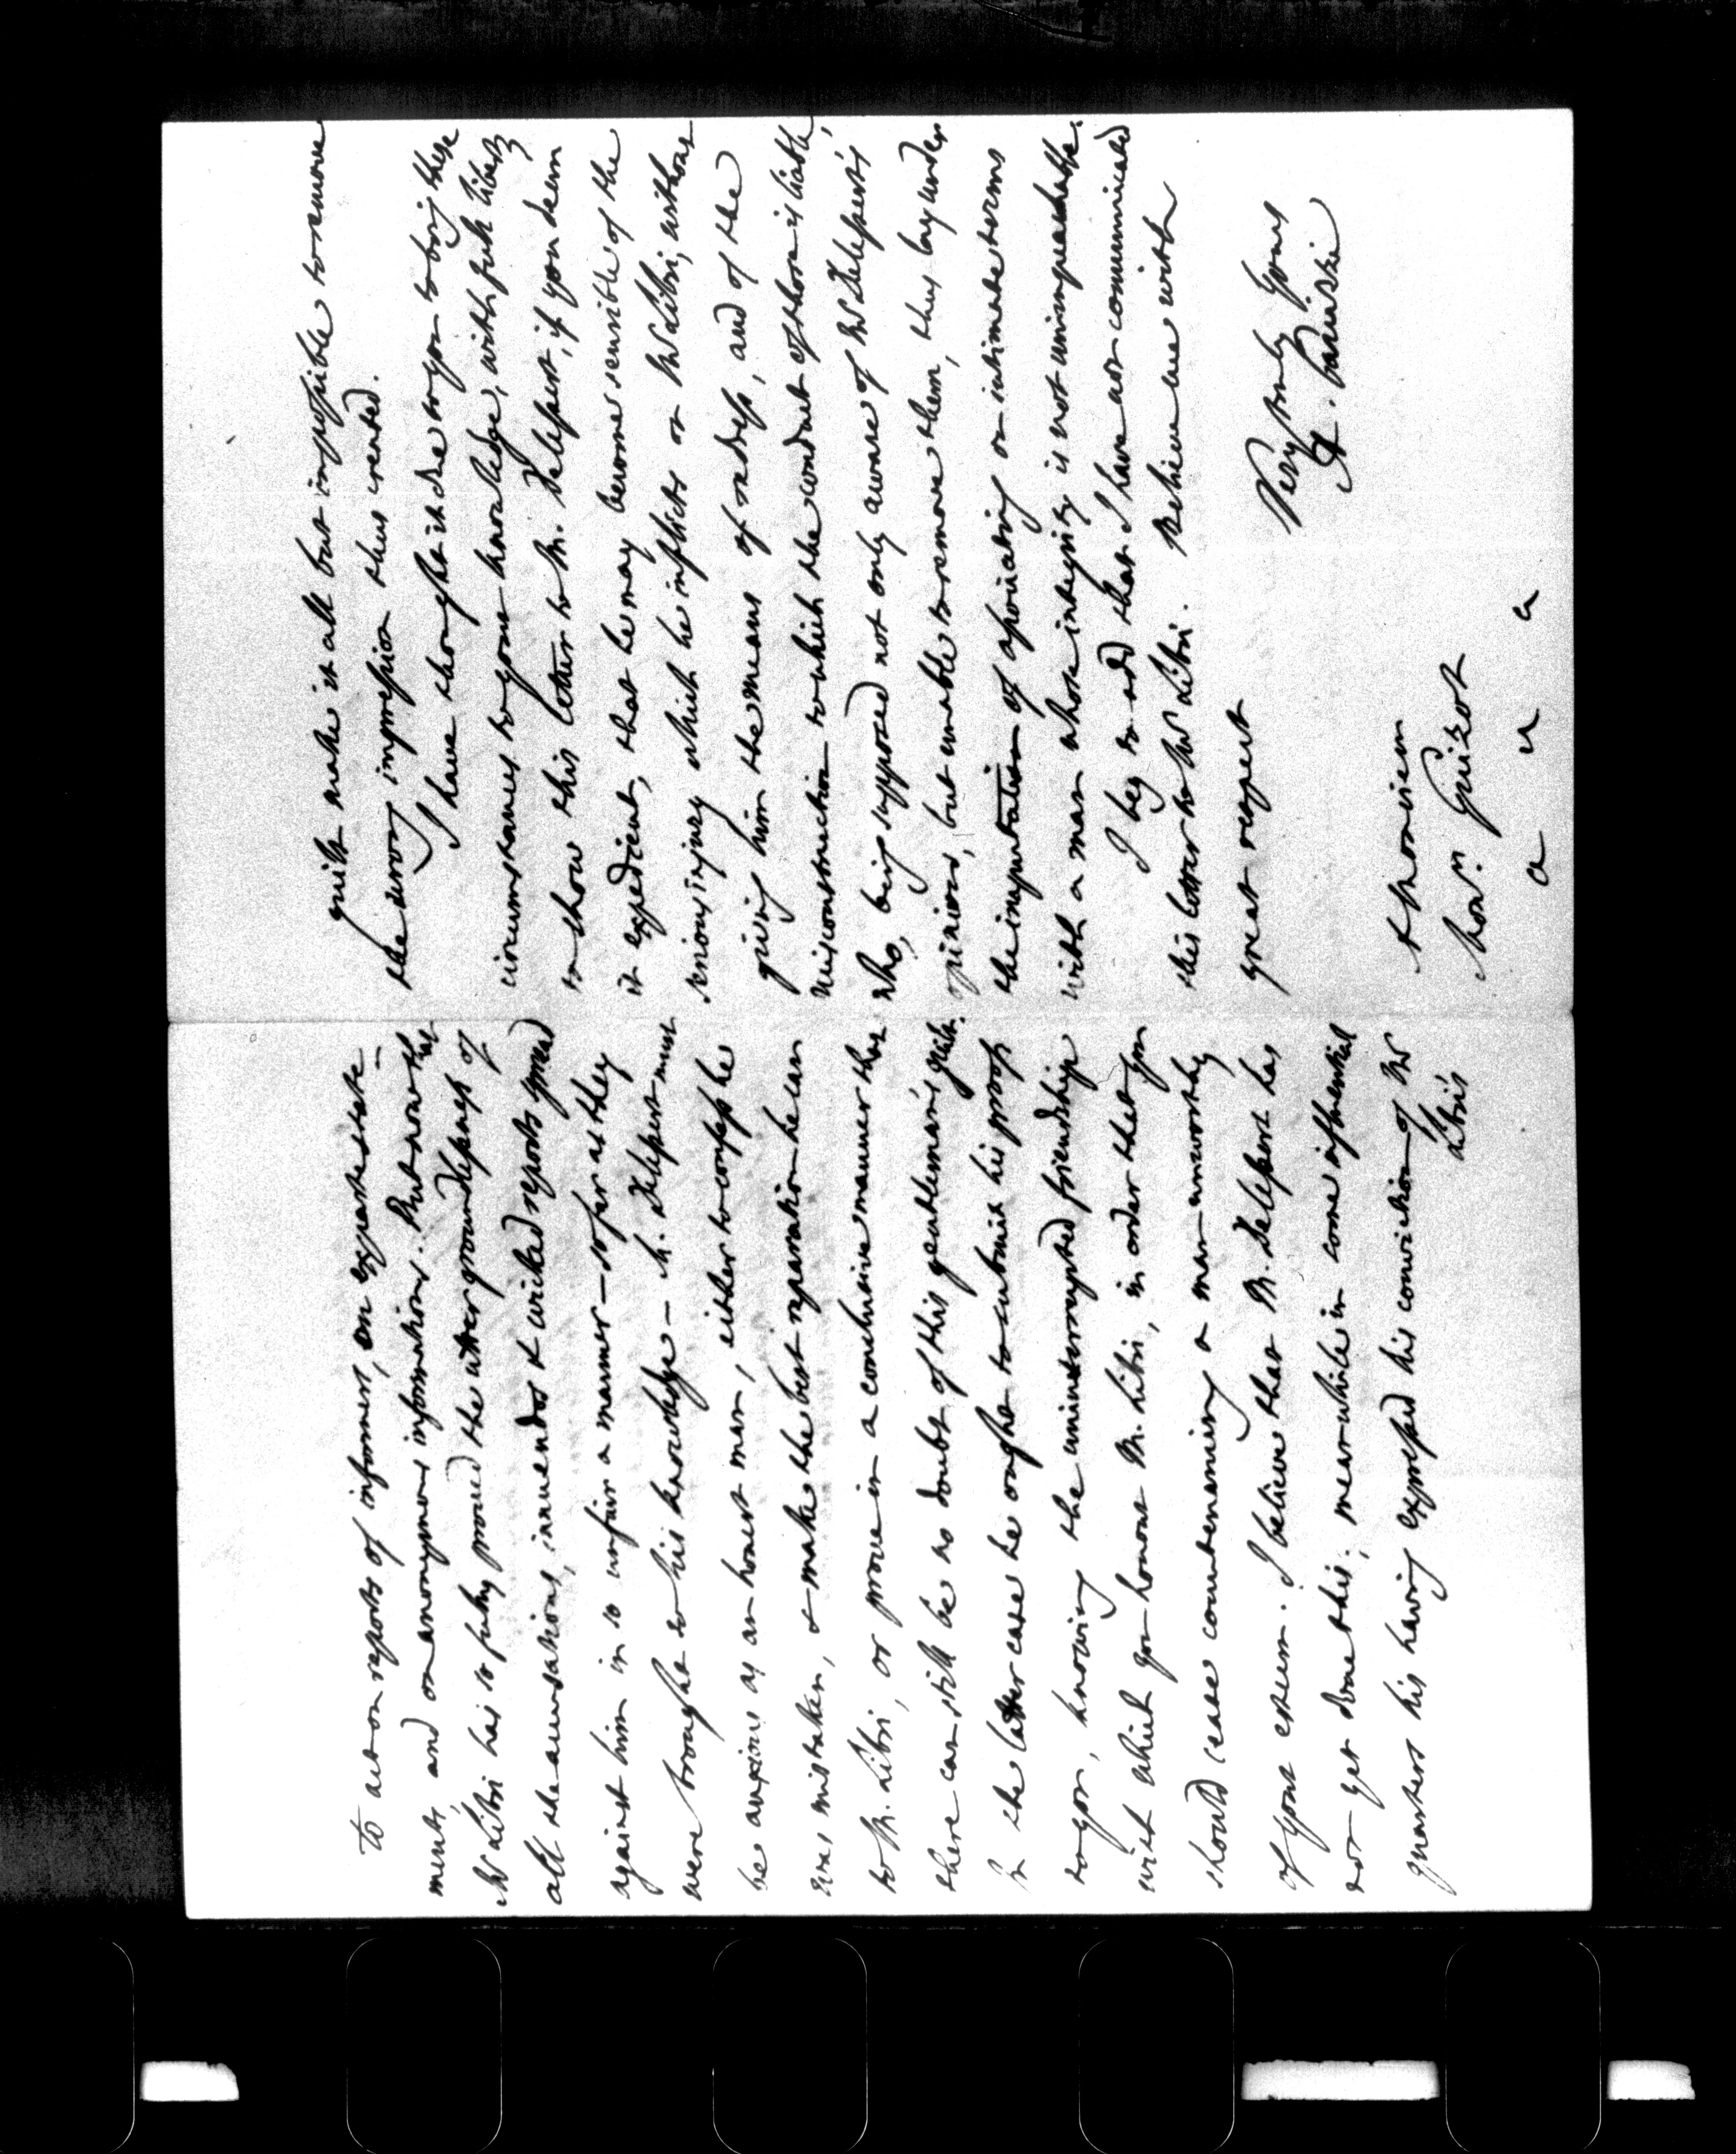 to act on reports of informers, on exparte state-
ments, and on anonymous informations. But now that
Mr Libri has so fully proved the utter groundlessness of
all the accusations, innuendos & wicked reports spread
against him in so unfair a manner – so far as they
were brought to his knowledge – M. Delessert must
be anxious as an honest man, either to confess he
was mistaken, & make the best reparation he can
to M. Libri, or prove in a conclusive manner that
there can still be no doubt of this gentleman's guilt.
In the latter case he ought to submit his proofs
to you, knowing the uninterrupted friendship
with which you honour M. Libri, in order that you
should cease countenancing a man unworthy
of your esteem. I believe that M. Delessert has
not yet done this; meanwhile in some influential
quarters his having expressed his conviction of Mr
Libri's
guilt make it all but impossible to remove
the wrong impression thus created.
I have thought it due to you to bring these
circumstances to your knowledge, with full liberty
to show this letter to M. Delessert, if you deem
it expedient, that he may become sensible of the
serious injury which he inflicts on Mr Libri, without
giving him the means of redress, and of the
misconstruction to which the conduct of those is liable,
who, being supposed not only aware of Mr Delessert's
opinions, but unable to remove them, thus lay under
the imputation of associating on intimate terms
with a man whose integrity is not unimpeachable.
I beg to add that I have not communicated
this letter to Mr Libri. Believe me with
great respect
Very truly Yours
A. Panizzi
A Monsieur
Monr. Guizot
a u a